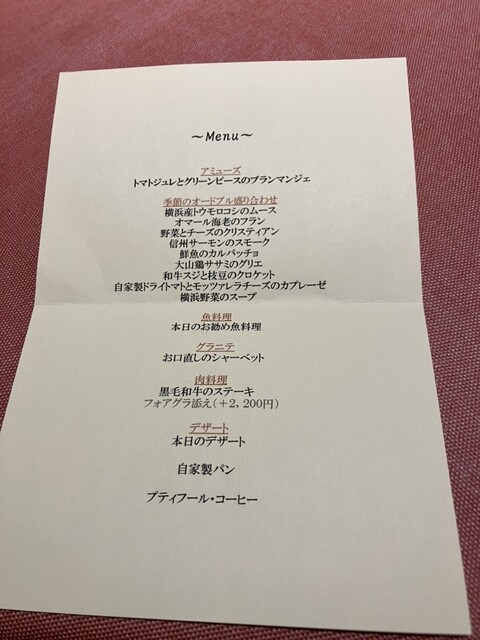 ～Menu～
アミューズ
トマトジュレとグリーンピースのブランマンジェ
季節のオードブル盛り合わせ
横浜産トウモロコシのムース
オマール海老のフラン
野菜とチーズのクリスティアン
信州サーモンのスモーク
鮮魚のカルパッチョ
大山鶏ササミのグリエ
和牛スジと枝豆のクロケット
自家製ドライトマトとモッツァレラチーズのカプレーゼ
横浜野菜のスープ
魚料理
本日のお勧め魚料理
グラニテ
お口直しのシャーベット
肉料理
黒毛和牛のステーキ
フォアグラ添え(＋2,200円)
デザート
本日のデザート
自家製パン
プティフール・コーヒー